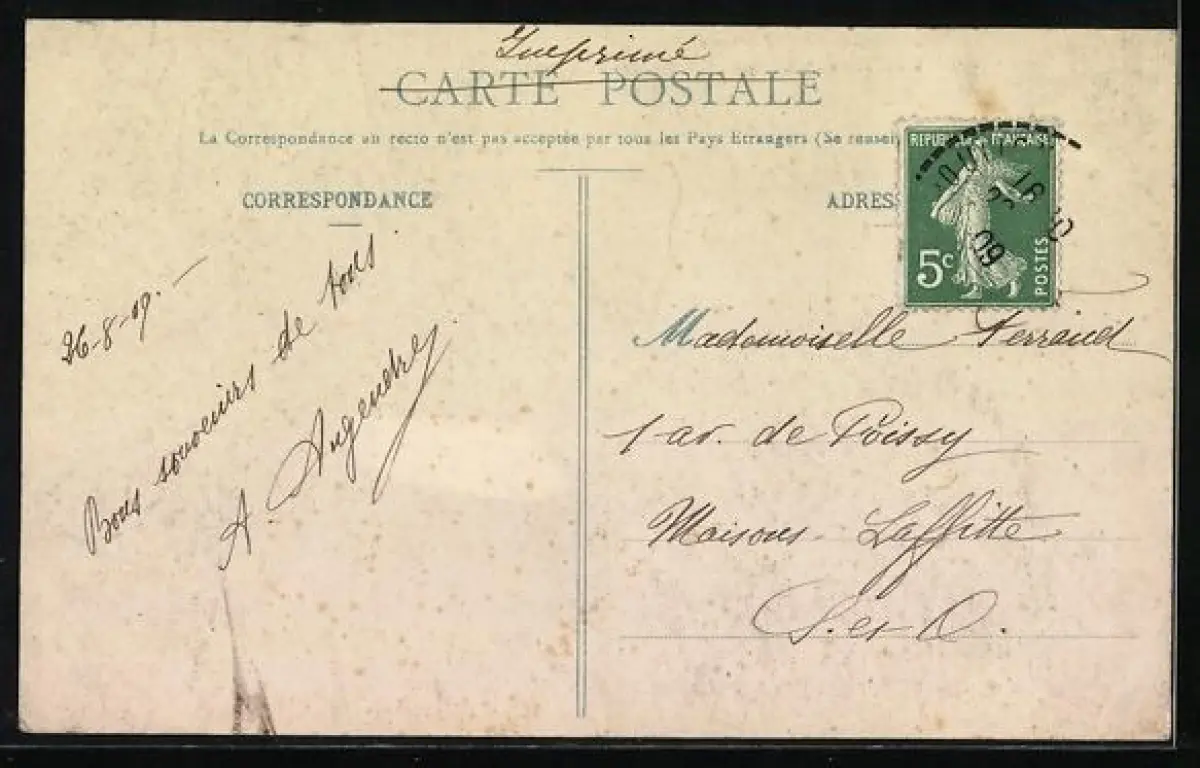 Imprimé
CARTE POSTALE
La Correspondance au recto n'est pas acceptée par tous les Pays Etrangers (Se rensei
CORRESPONDANCE
ADRES
REPUBLIQUE FRANÇAISE
5c
POSTES
09
26-8-09.-
Bons souvenirs de tous
A. Angendre
Mademoiselle Ferrand
1 av. de Poissy
Maisons-Laffitte
S. et O.